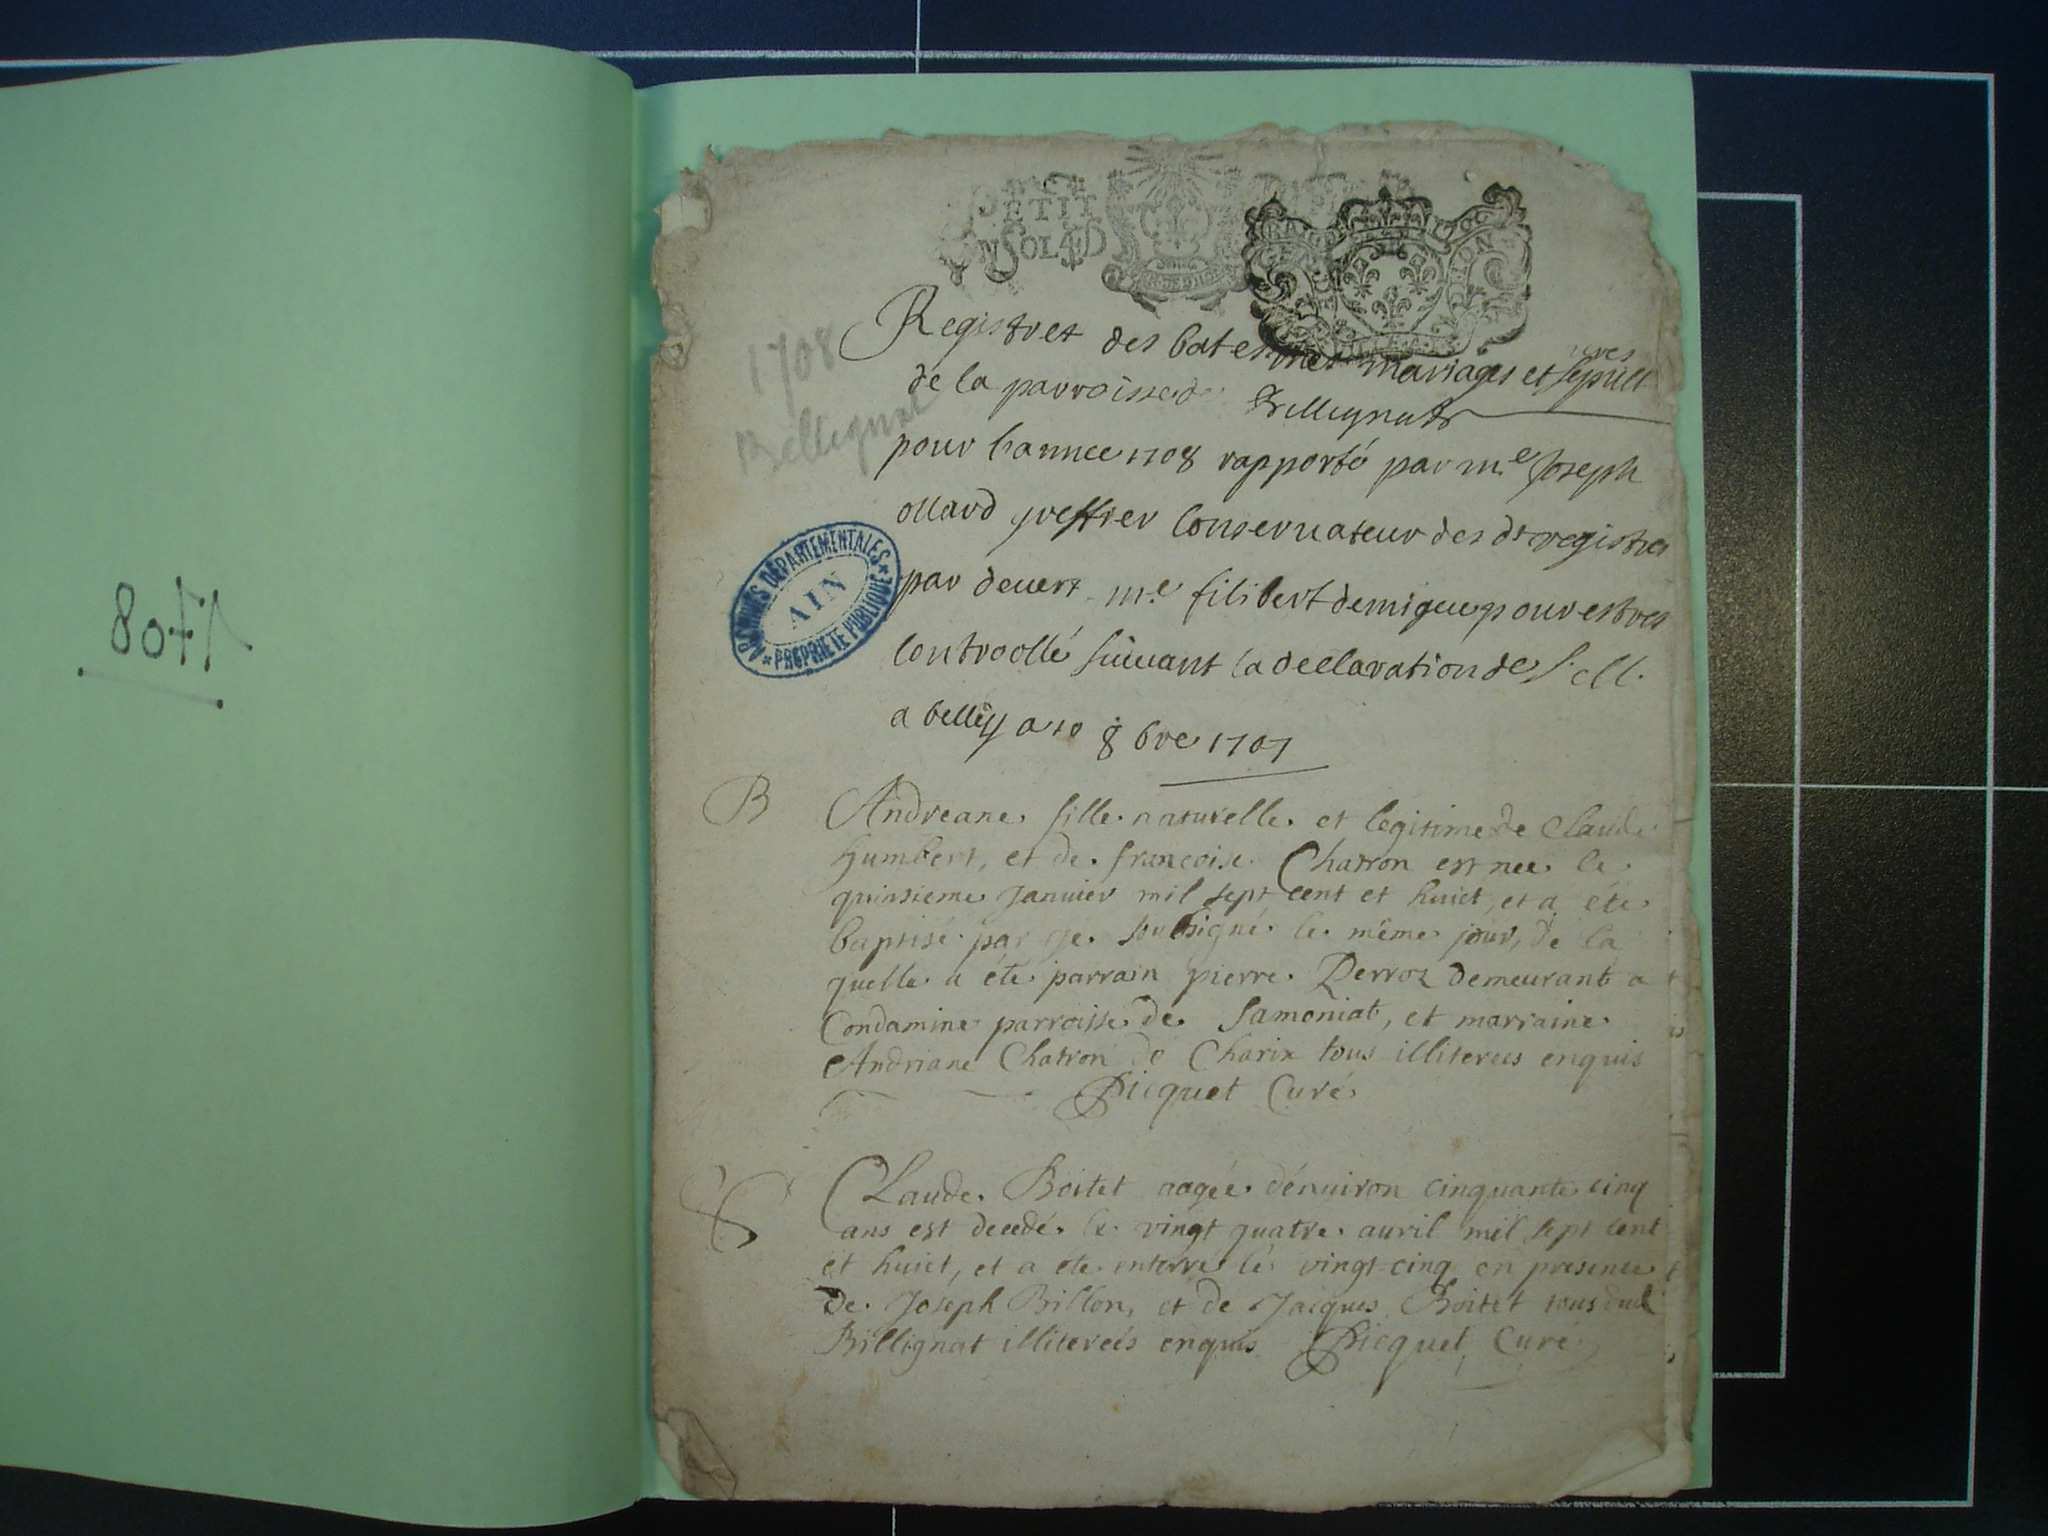 1708
PETIT
UN SOL 4 D
1708
Bellignat
ARCHIVES DÉPARTEMENTALES
AIN
PROPRIÉTÉ PUBLIQUE
Registres des batesmes mariages et sepultures
de la parroisse de Billignat
pour l'annee 1708 rapporté par me Joseph
ollard greffier Conservateur des dt registres
par devers me filibert demigeu pour estres
Controollé suivant la declaration de S. M.
a belley a 10 8bre 1707
B
Andreane fille naturelle et legitime de Claude
humbert, et de francoise Chatron est nee le
quinsieme Janvier mil sept cent et huict, et a été
baptisé par je soubsigné le même jour, de la
quelle a été parrain pierre Perroz demeurant a
Condamine parroisse de Samoniat, et marraine
Andriane Chatron de Charix tous illiterés enquis
Picquet Curé
S
Claude Boitet aagée d'enuiron cinquante cinq
ans est decedé le vingt quatre auril mil sept cent
et huict, et a été enterré le vingt-cinq en presence
de Joseph Billon, et de Jacques Boitet tous dud
Billignat illiterés enquis Picquet Curé